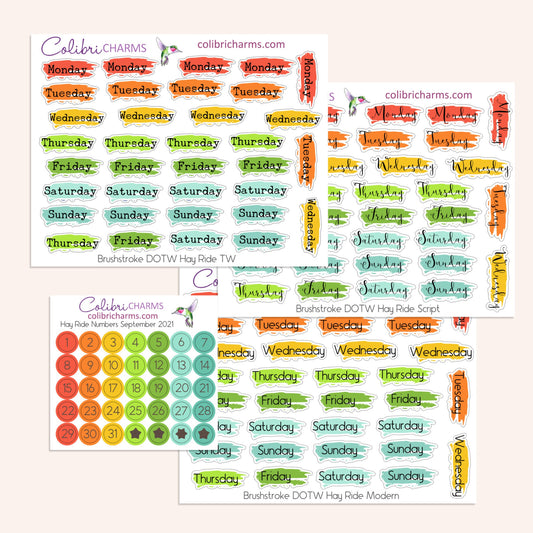 Colibri CHARMS
colibricharms.com
Monday Monday Monday Monday Monday
Tuesday Tuesday Tuesday Tuesday
Wednesday Wednesday Wednesday
Thursday Thursday Thursday Thursday Tuesday
Friday Friday Friday Friday
Saturday Saturday Saturday Saturday Wednesday
Sunday Sunday Sunday Sunday
Thursday Friday Saturday Sunday
Brushstroke DOTW Hay Ride TW
colibricharms.com
Monday Monday Monday
Tuesday Tuesday
Wednesday Wednesday
Thursday Thursday Tuesday
Friday Friday
Saturday Saturday Wednesday
Sunday Sunday
Thursday Friday Saturday Sunday
Brushstroke DOTW Hay Ride Script
Colibri CHARMS
colibricharms.com
Hay Ride Numbers September 2021
1 2 3 4 5 6 7
8 9 10 11 12 13 14
15 16 17 18 19 20 21
22 23 24 25 26 27 28
29 30 31
Tuesday Tuesday Tuesday Tuesday
Wednesday Wednesday Wednesday
Thursday Thursday Thursday Thursday Tuesday
Friday Friday Friday Friday
Saturday Saturday Saturday Saturday Wednesday
Sunday Sunday Sunday Sunday
Thursday Friday Saturday Sunday
Brushstroke DOTW Hay Ride Modern